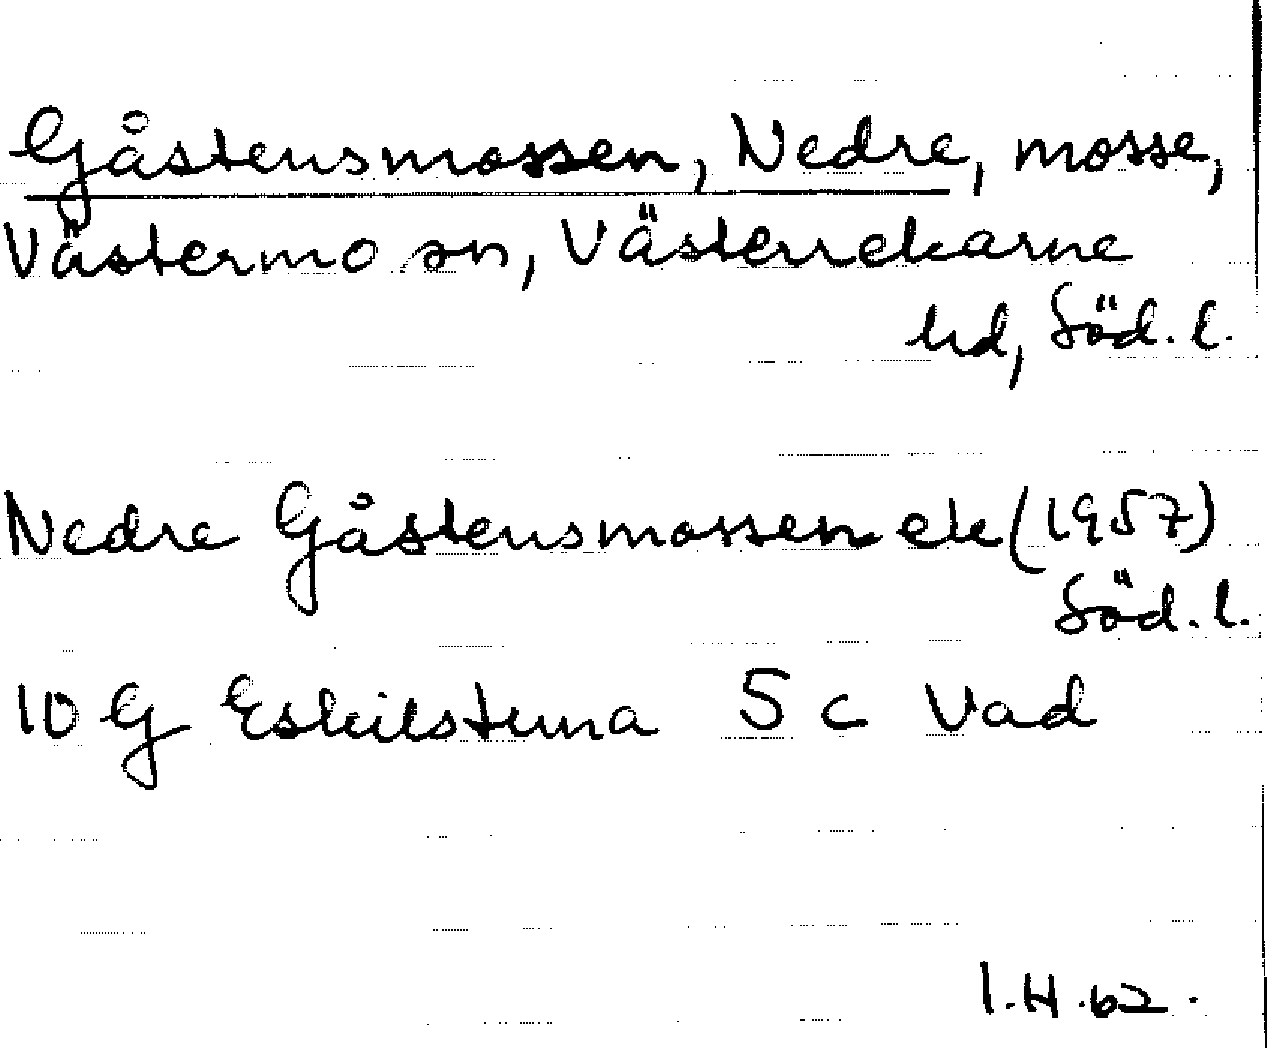 Gåstensmossen, Nedre, mosse,
Västermo sn, Västerrekarne
hd, Söd. l.
Nedre Gåstensmossen ek (1957)
Söd. l.
10 G Eskilstuna 5 c Vad
I.H. 62.